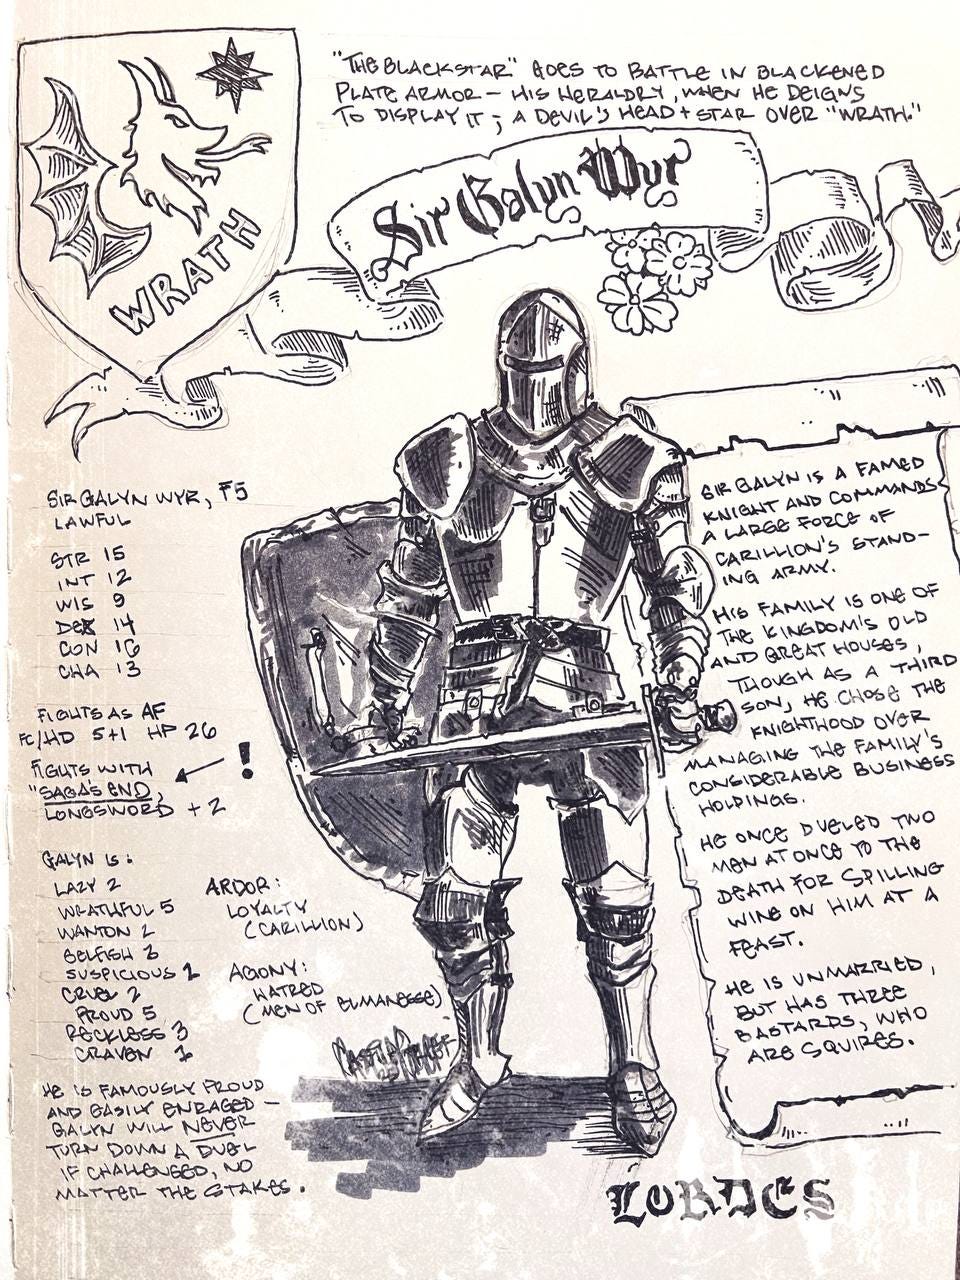 "THE BLACK STAR" GOES TO BATTLE IN BLACKENED
PLATE ARMOR – HIS HERALDRY, WHEN HE DEIGNS
TO DISPLAY IT; A DEVIL'S HEAD + STAR OVER "WRATH."
WRATH
Sir Galyn Wyr
SIR GALYN WYR, F5
LAWFUL
STR 15
INT 12
WIS 9
DEX 14
CON 16
CHA 13
FIGHTS AS AF
FC/HD 5+1 HP 26
FIGHTS WITH
"SAGA'S END,
LONGSWORD +2
!
GALYN IS:
LAZY 2
WRATHFUL 5
WANTON 2
SELFISH 3
SUSPICIOUS 1
CRUEL 2
PROUD 5
RECKLESS 3
CRAVEN 1
ARDOR:
LOYALTY
(CARILLION)
AGONY:
HATRED
(MEN OF ELMANESSE)
HE IS FAMOUSLY PROUD
AND EASILY ENRAGED –
GALYN WILL NEVER
TURN DOWN A DUEL
IF CHALLENGED, NO
MATTER THE STAKES.
SIR GALYN IS A FAMED
KNIGHT AND COMMANDS
A LARGE FORCE OF
CARILLION'S STAND-
ING ARMY.
HIS FAMILY IS ONE OF
THE KINGDOM'S OLD
AND GREAT HOUSES,
THOUGH AS A THIRD
SON, HE CHOSE THE
KNIGHTHOOD OVER
MANAGING THE FAMILY'S
CONSIDERABLE BUSINESS
HOLDINGS.
HE ONCE DUELED TWO
MEN AT ONCE TO THE
DEATH FOR SPILLING
WINE ON HIM AT A
FEAST.
HE IS UNMARRIED,
BUT HAS THREE
BASTARDS, WHO
ARE SQUIRES.